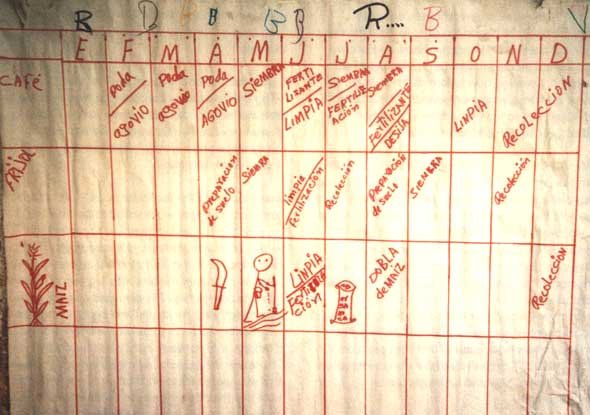 B D B B B R.... B V
E F M A M J J A S O N D
CAFÉ
poda
agovio
Poda
agovio
Poda
AGOVIO
SIEMBRA
FERTI
LIZANTE
LIMPIA
SIEMBRA
FERTILIZ
ACIÓN
SIEMBRA
Fertilizante
LIMPIA
Recoleccion
FRIJOL
preparacion
de suelo
SIEMBRA
limpia
Fertilización
Recolección
preparación
de suelo
SIEMBRA
Recolección
MAIZ
LIMPIA
CIÓN
DOBLA
de MAIZ
Recolección